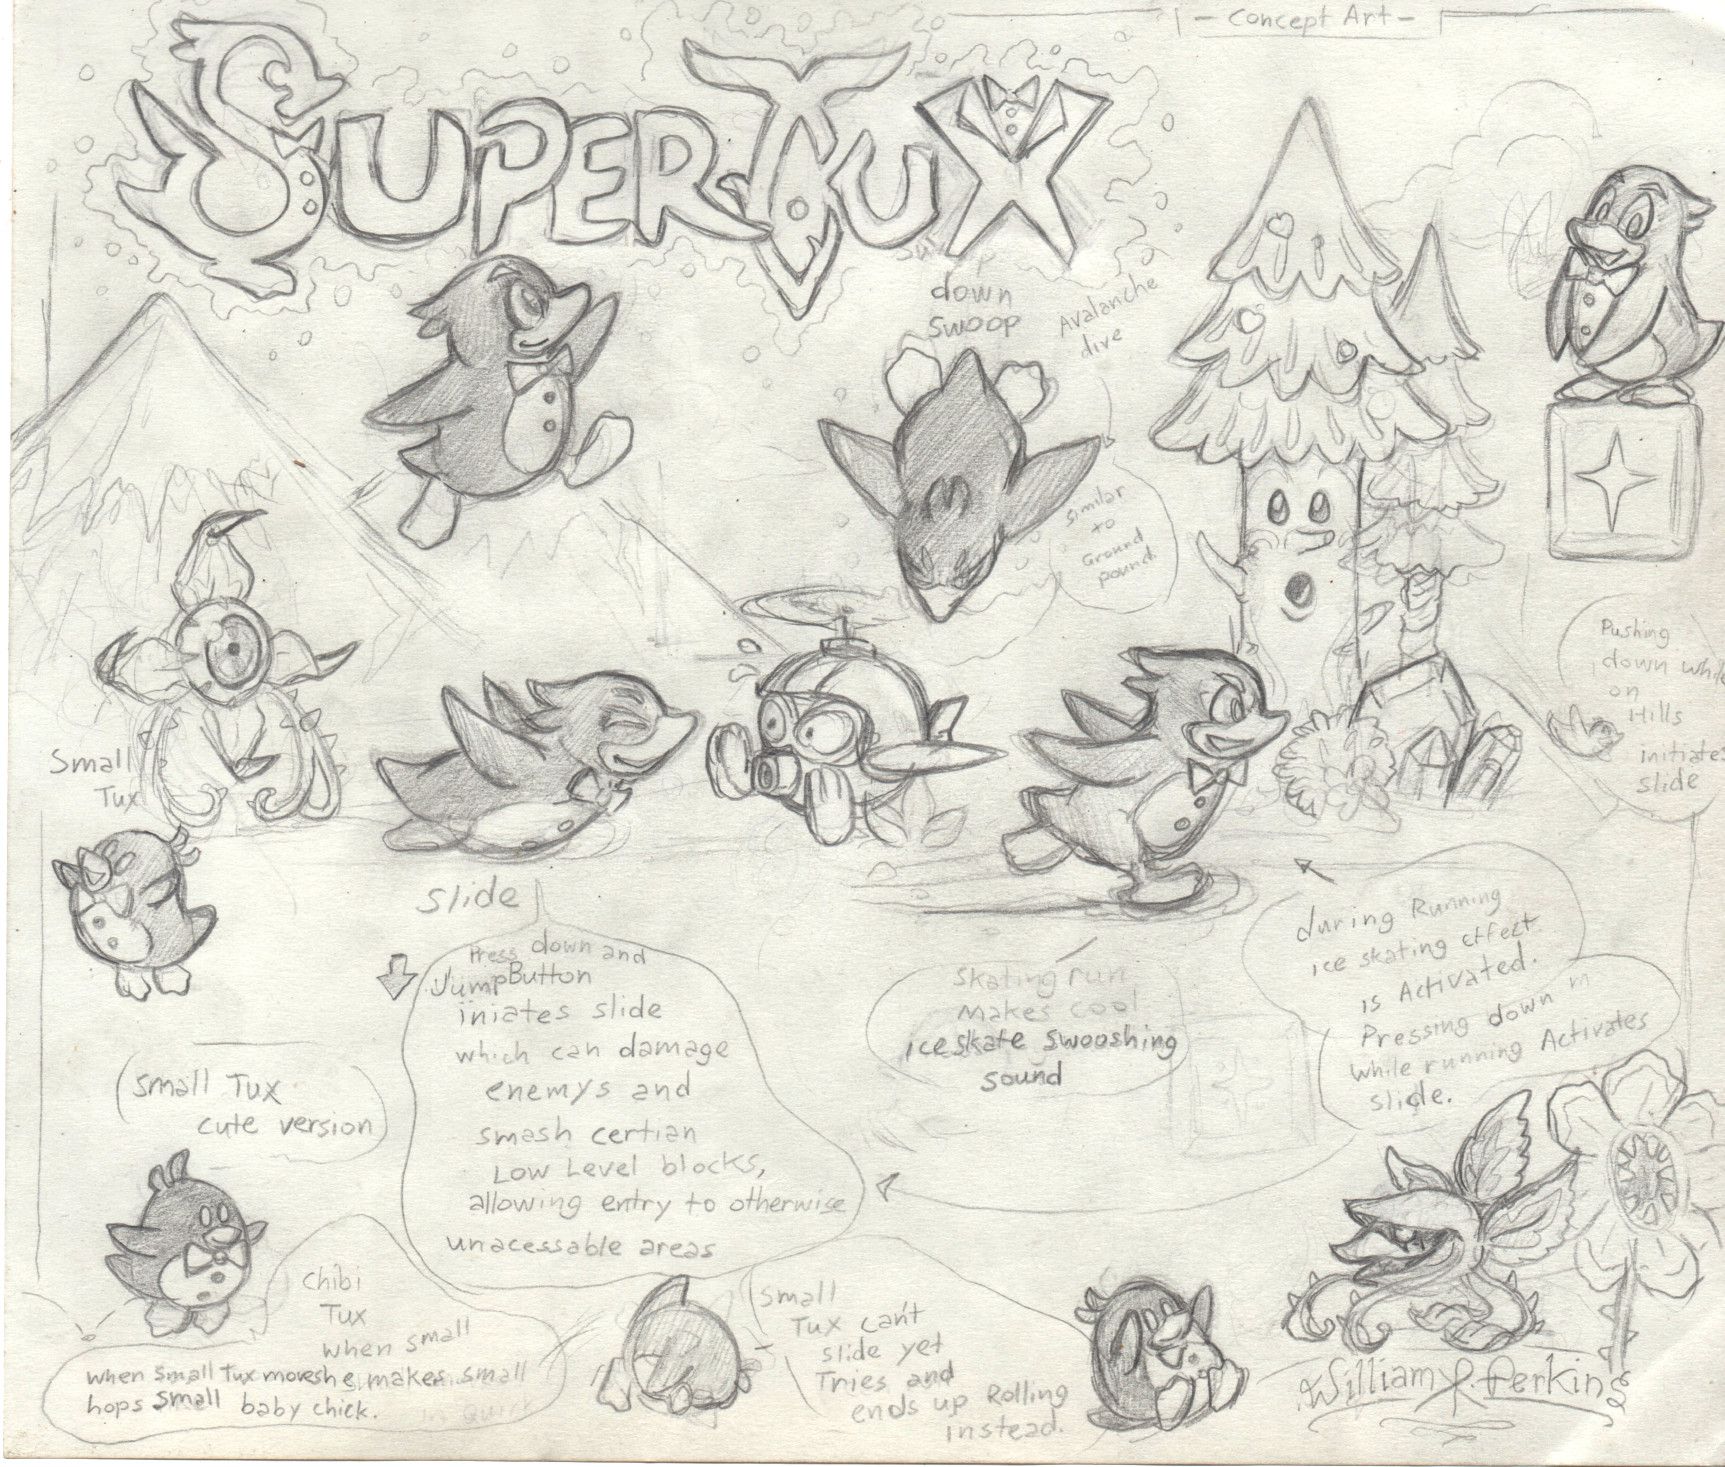 - Concept Art -
SUPERTUX
down
swoop
Avalanche
dive
similar
to
Ground
pound.
Pushing
down while
on
Hills
initiates
slide
Small
Tux
Slide
Press down and
Jump Button
iniates slide
which can damage
enemys and
smash certian
Low Level blocks,
allowing entry to otherwise
unacessable areas
Skating run
Makes cool
ice skate swooshing
sound
during Running
ice skating effect
is Activated.
Pressing down
while running Activates
slide.
(Small Tux
cute version)
Chibi
Tux
when small
when small Tux moves he makes small
hops small baby chick.
Small
Tux can't
slide yet
Tries and
ends up Rolling
instead.
William P. Perkins